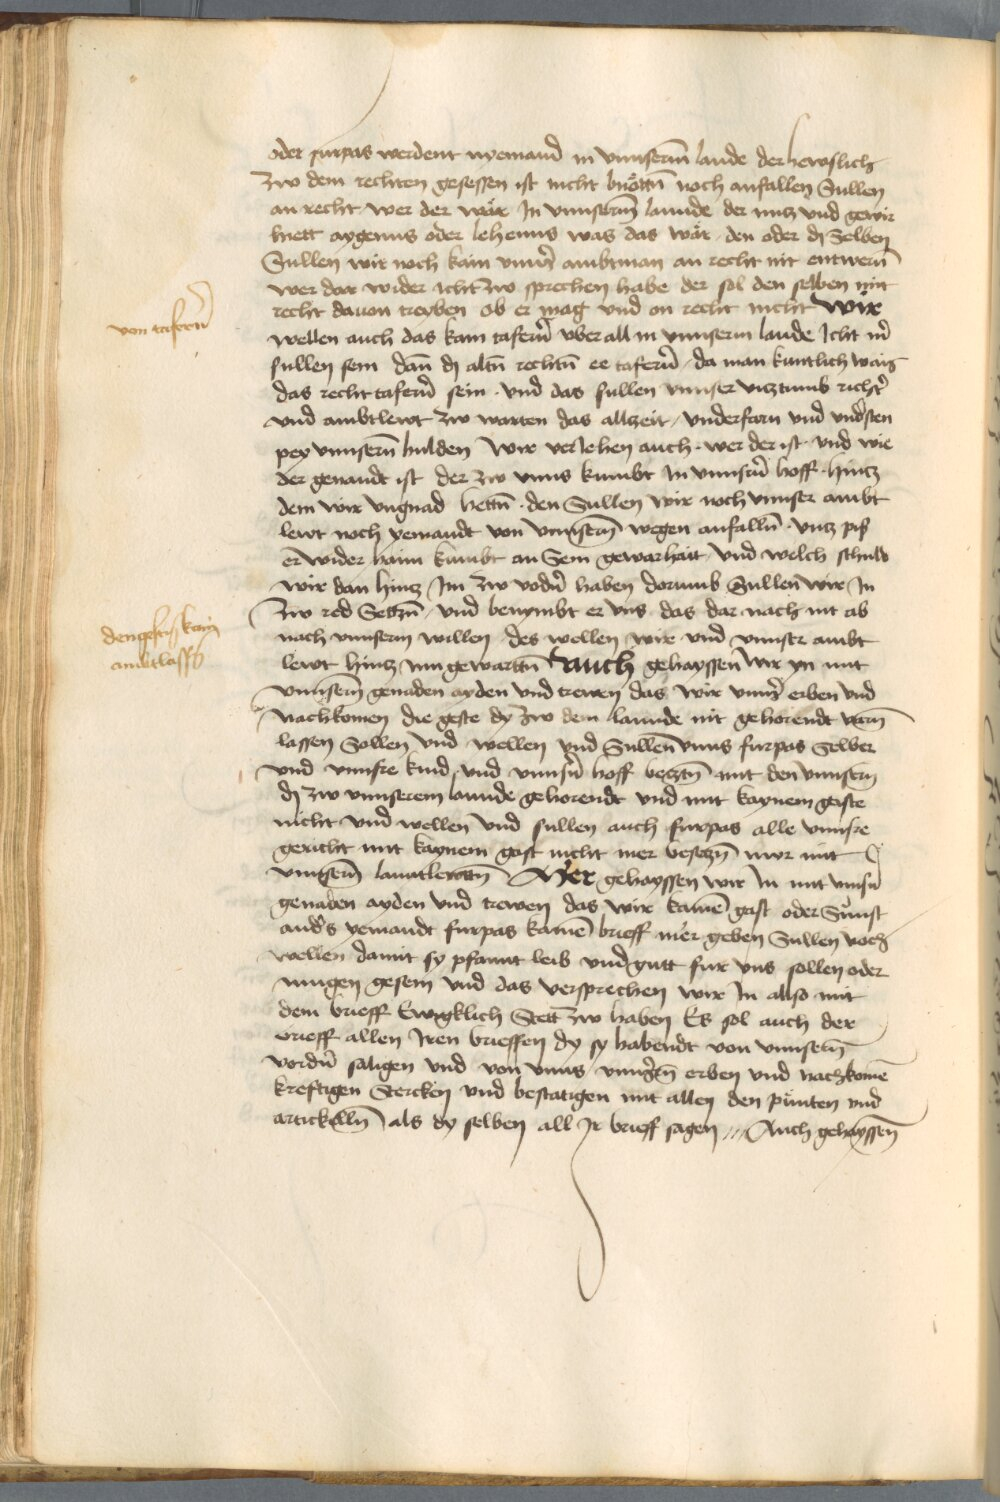 oder furpas werdent nyemand in vnnserm lande der hewslich
zw dem rechten gesessen ist nicht nötten noch anfallen Süllen
an recht wer der wär In vnnserm lannde der nutz vnd gewir
hett aygenns oder lehenns was das wär · den oder dj Selben
Süllen wir noch kain vnnser ambtman an recht nit entwern
wer dar wider icht zw sprechen habe der sol den selben mit
recht dauon treyben ob er mag vnd on recht nicht Wir
von tafern
wellen auch das kain tafern vberall in vnnserm lande Icht mer
sullen sein dan dj altn rechtn ee tafern · da man kuntlich wais
das recht tafern sein · vnd das sullen vnnser vitztumb richter
vnd ambtlewt zw warten das allzeit / vnderfarn vnd vndersten
pey vnnsern hulden Wir verlehen auch · wer der ist · vnd wie
der genandt ist der zw vnns kumbt In vnnsern hoff · hintz
dem wir vngnad hettn · den Sullen wir noch vnnser ambt
lewt noch yemandt von vnnsern wegen anfalln · vntz pis
er wider haim kumbt an Sein gewarhait / vnd welch schuld
wir dan hintz Im zw vodern haben darumb Sullen wir In
zw red Setzn / vnd benymbt er vns das dar nach nit ab
den gesten kain
ambt lassen
nach vnnserm willen · des wellen wir vnd vnnser ambt
lewt hintz im gewarttn Auch gehayssen wir yn mit
vnnsern genaden ayden vnd trewen das wir vnnser erben vnd
nachkomen die geste dy zw dem lannde nit gehorendt varn
lassen Sollen vnd wellen vnd Sullen vnns furpas Selber
vnd vnnsre kind vnd vnnsern hoff besetzn mit den vnnsern
dj zw vnnserem lannde gehorendt vnd mit kaynem gaste
nicht vnd wellen vnd sullen auch furpas alle vnnsre
gericht mit kaynem gast nicht mer besetzn nwr mit
vnnsern lanntlewtn Mer gehayssen wir In mit vnnsern
genaden ayden vnd trewen das wir kainem gast oder Sunst
anders yemandt furpas kainen brieff mer geben Sullen noch
wellen damit sy pfannt leib vnd gutt fur vns sollen oder
mugen gesein vnd das versprechen wir In allso mit
dem brieff Ewigklich Stett zw haben Es sol auch der
brieff allen Iren brieffen dy sy habendt von vnnsern
vordern säligen vnd von vnns vnnsern erben vnd nachkomen
kreftigen Stercken vnd bestatigen mit allen den punten vnd
artickelln als dy selben all Ir brieff sagen /// Auch gehayssen